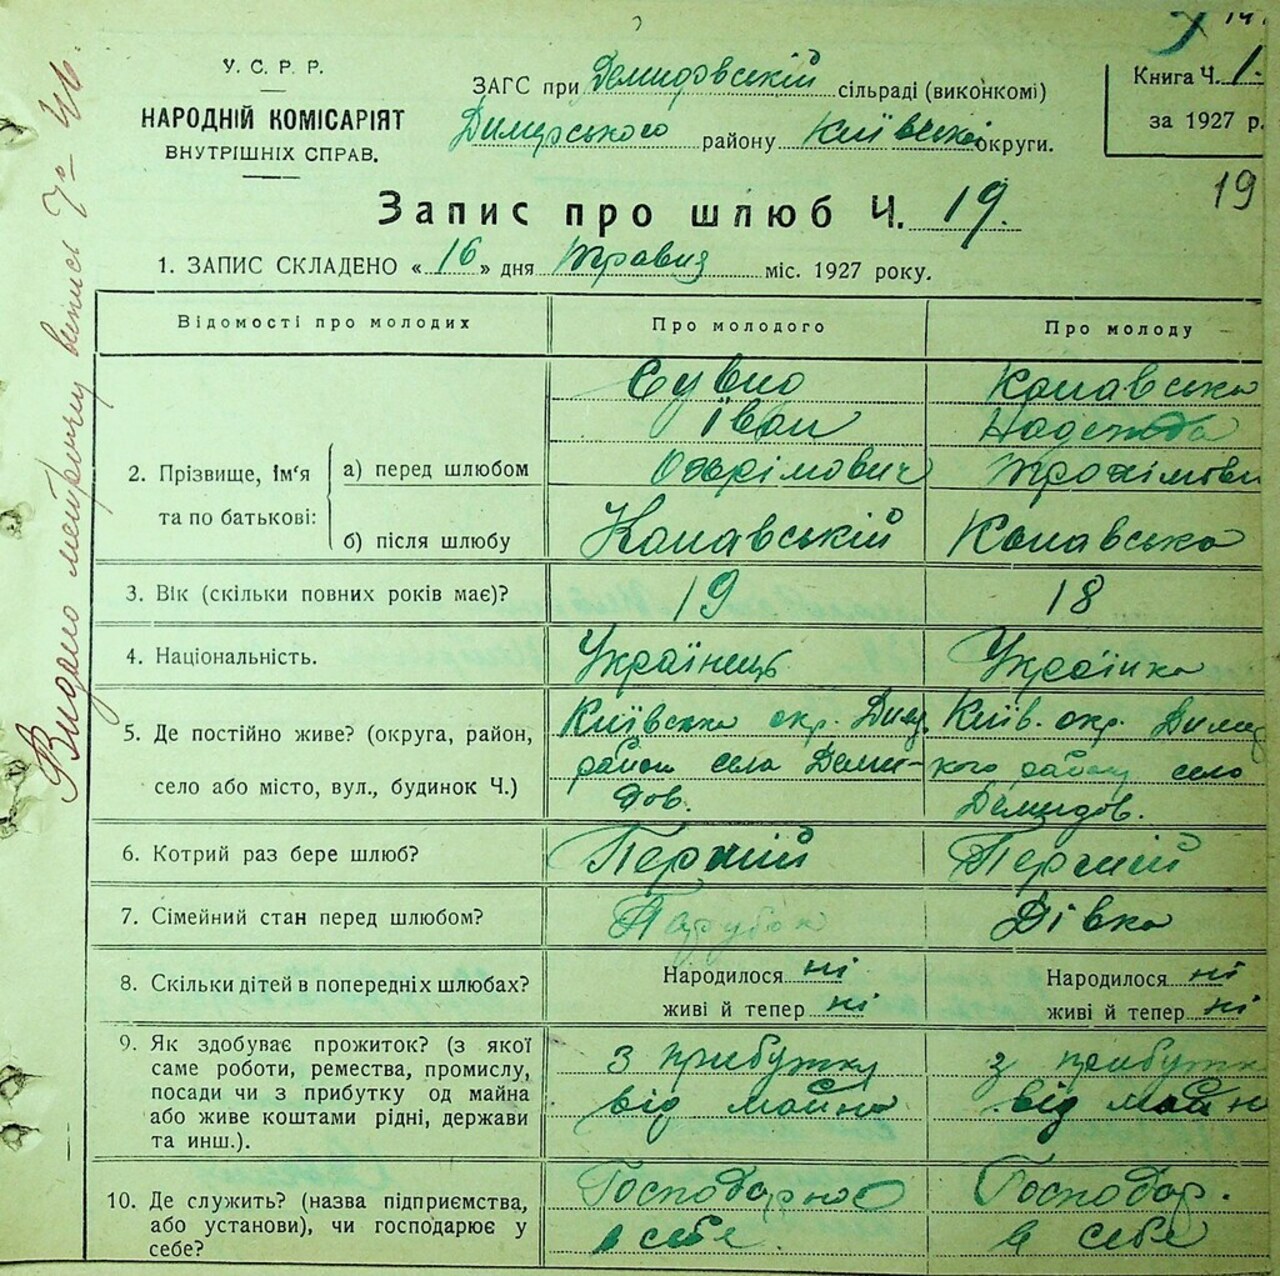 У. С. Р. Р.
НАРОДНІЙ КОМІСАРІЯТ
ВНУТРІШНІХ СПРАВ.
ЗАГС при Демидовській сільраді (виконкомі)
Димерського району Київської округи.
Книга Ч. 1.
за 1927 р.
19
Запис про шлюб Ч. 19.
1. ЗАПИС СКЛАДЕНО « 16 » дня травня міс. 1927 року.
Відомості про молодих Про молодого Про молоду
2. Прізвище, ім'я та по батькові:
а) перед шлюбом
Єувко Канавська
Їван Надежда
Охрімович Трохімовн
б) після шлюбу Канавській Канавська
3. Вік (скільки повних років має)? 19 18
4. Національність. Українець Українка
5. Де постійно живе? (округа, район,
село або місто, вул., будинок Ч.)
Київська окр. Дим. Київ. окр. Димер
район село Деми- кого району село
дов. Демидов.
6. Котрий раз бере шлюб? Перший Перший
7. Сімейний стан перед шлюбом? Парубок Дівка
8. Скільки дітей в попередніх шлюбах? Народилося ні Народилося ні
живі й тепер ні живі й тепер ні
9. Як здобуває прожиток? (з якої
саме роботи, ремества, промислу,
посади чи з прибутку од майна
або живе коштами рідні, держави
та инш.).
з прибутку з прибутк
від майна від майн
10. Де служить? (назва підприємства,
або установи), чи господарює у
себе?
Господарює Господар.
в себе в себе
Видано метричну випись